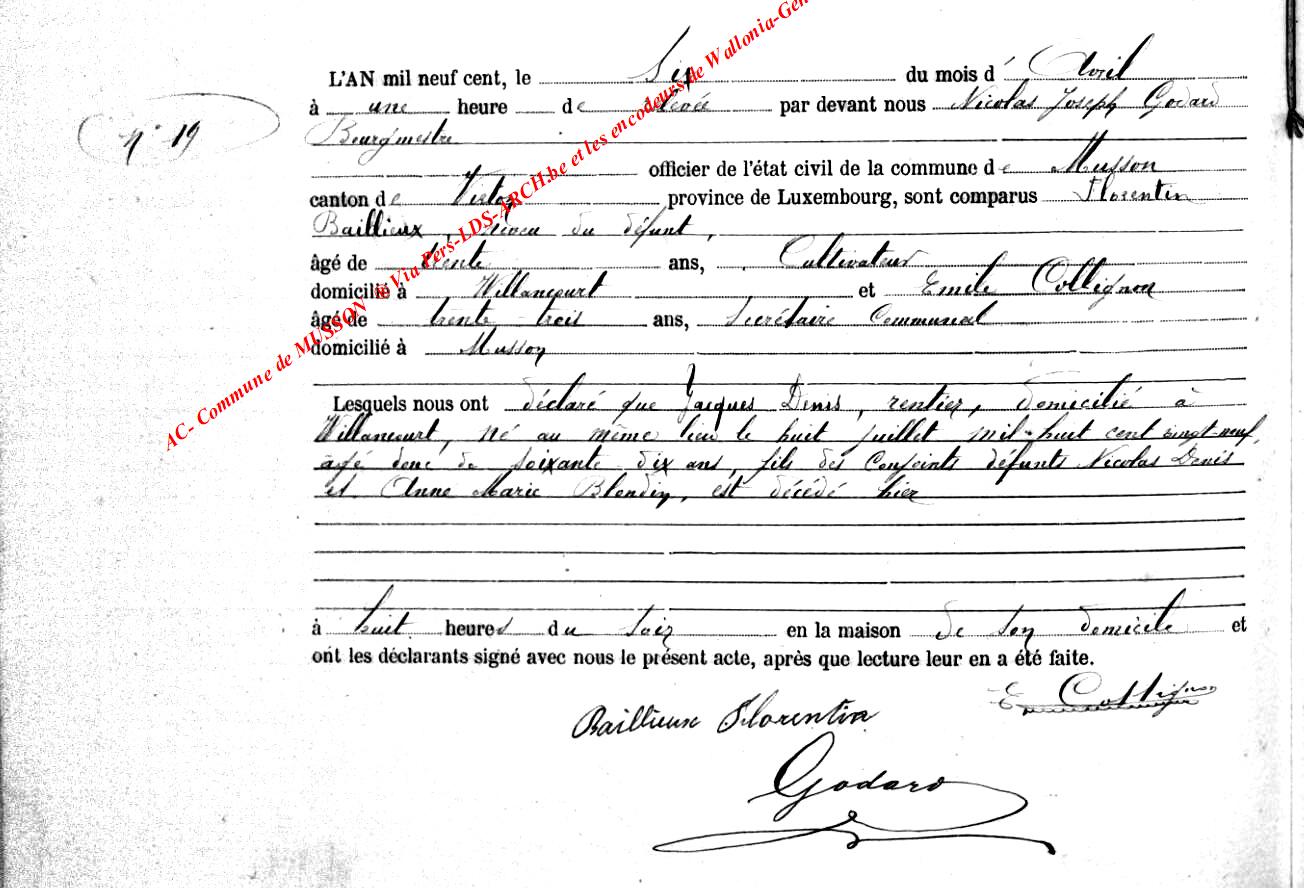 AC- Commune de MUSSON @ Via Pers-LDS-ARCH.be et les encodeurs de Wallonia-Gen
n° 19
L'AN mil neuf cent, le Six du mois d' Avril
à une heure de relevée par devant nous Nicolas Joseph Godard
Bourgmestre
officier de l'état civil de la commune de Musson
canton de Virton province de Luxembourg, sont comparus Florentin
Baillieux, neveu du défunt,
âgé de trente ans, Cultivateur
domicilié à Willancourt et Emile Collignon
âgé de trente trois ans, Secrétaire Communal
domicilié à Musson
Lesquels nous ont déclaré que Jacques Denis, rentier, domicilié à
Willancourt, né au même lieu le huit juillet mil-huit cent vingt-neuf,
âgé donc de soixante dix ans, fils des conjoints défunts Nicolas Denis
et Anne Marie Blondin, est décédé hier
à huit heures du soir en la maison de son domicile et
ont les déclarants signé avec nous le présent acte, après que lecture leur en a été faite.
E Collignon
Baillieux Florentin
Godard